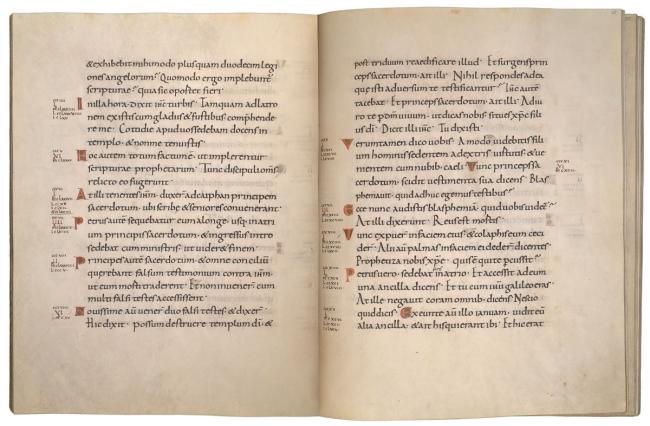 & exhibebit mihi modo plus quam duodecim legi
ones angelorum Quomodo ergo implebunt
scripturae quia sic oportet fieri
In illa hora dixit ihs turbis Tamquam ad latro
nem existis cum gladiis & fustibus comprehende
re me Cottidie apud uos sedebam docens in
templo & non me tenuistis
Hoc autem totum factum ut implerentur
scripturae prophetarum Tunc discipuli oms
relicto eo fugerunt
At illi tenentes ihm duxer ad caiphan principem
sacerdotum ubi scribe & seniores conuenerant
Petrus aut sequebatur eum a longe usq in atri
um principis sacerdotum & ingressus intro
sedebat cum ministris ut uider& finem
Principes aut sacerdotum & omne conciliu
querebant falsum testimonium contra ihm
ut eum morti traderent Et non inuener cum
multi falsi testes accessissent
Nouissime au uener duo falsi testes & dixer
Hic dixit possum destruere templum di &
post triduum reaedificare illud Et surgens prin
ceps sacerdotum ait illi Nihil respondes ad ea
que isti aduersum te testificantur Ihs aut
tacebat Et princeps sacerdotum ait illi Adiu
ro te p dm uiuum ut dicas nobis si tu es xps fili
us di Dicit illi ihs Tu dixisti
Verumtamen dico uobis A modo uidebitis fili
um hominis sedentem a dextris uirtutis & ue
nientem cum nubib caeli Tunc princeps sa
cerdotum scidit uestimenta sua dicens Blas
phemauit quid adhuc egemus testibus
Ecce nunc audistis blasphemia quid uobis uidet
At illi dixerunt Reus est mortis
Tunc expuer in faciem eius & colaphis eum ceci
der Alii au palmas in faciem ei deder dicentes
Prophetiza nobis xpe quis e qui te percussit
Petrus uero sedebat in atrio Et accessit ad eum
una ancilla dicens Et tu cum ihu galileo eras
At ille negauit coram omnib dicens Nescio
quid dicis Exeunte au illo ianuam uidit eu
alia ancilla & ait his qui erant ibi Et hic erat